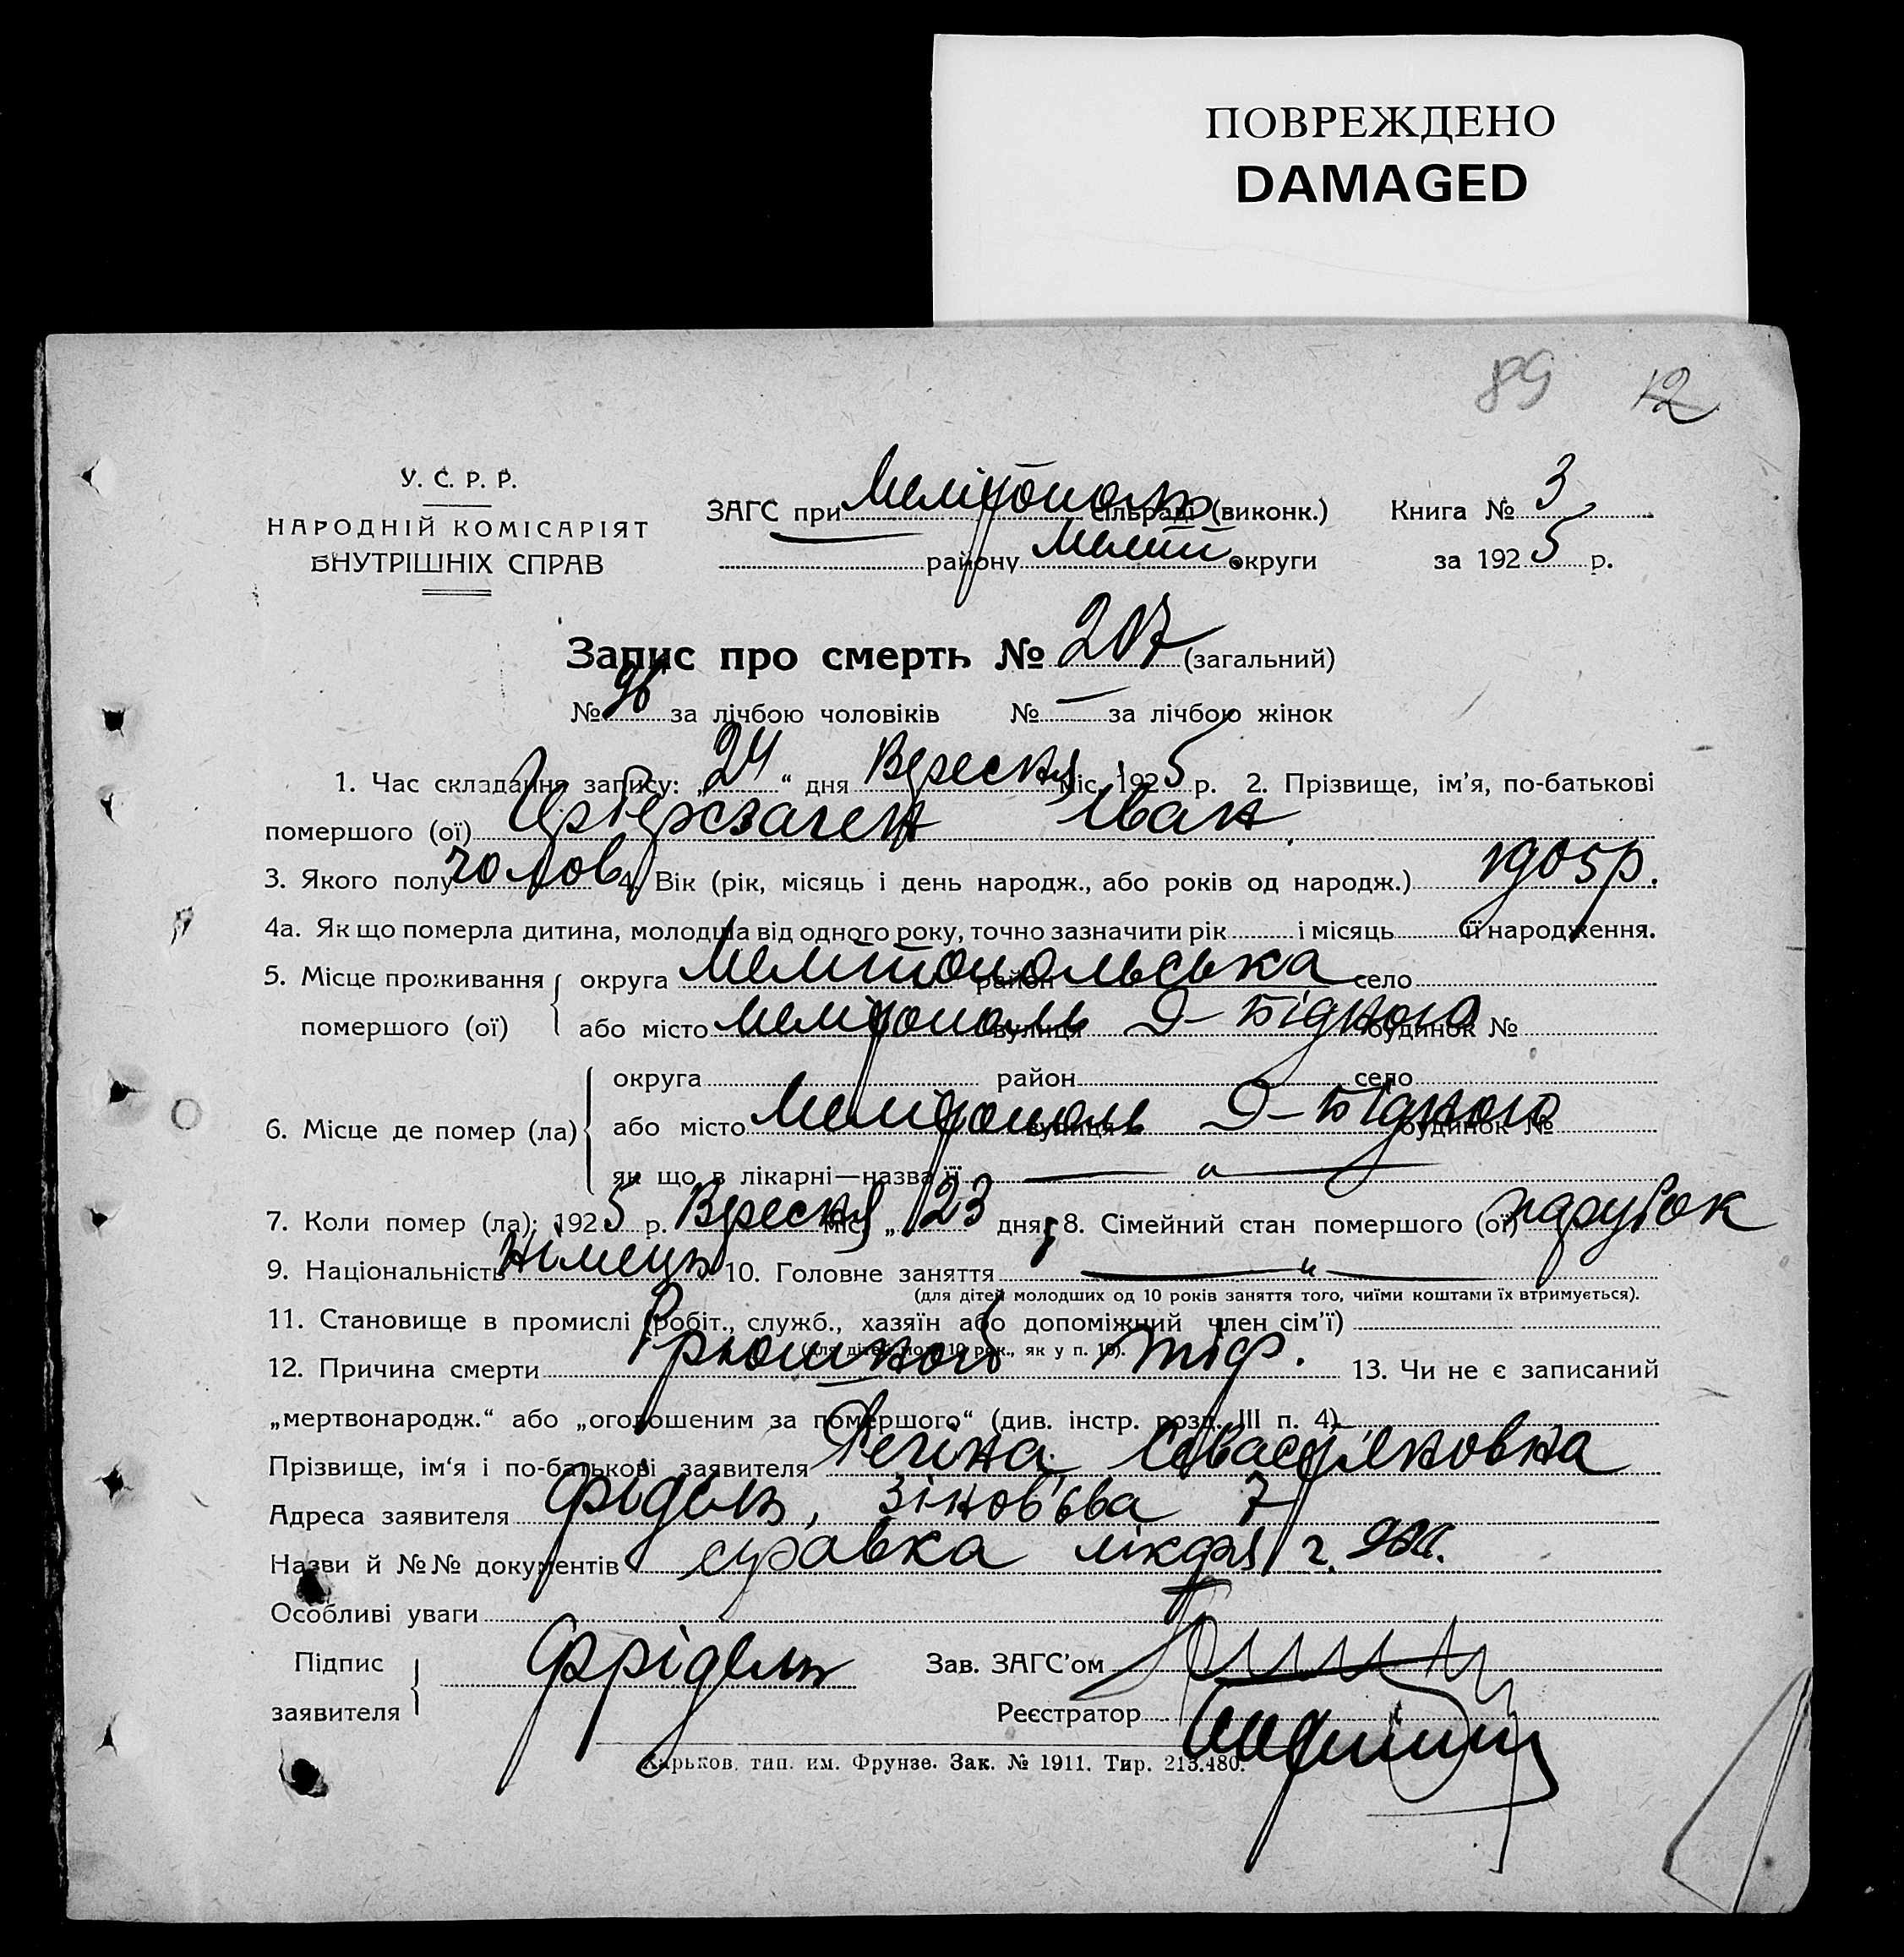 ПОВРЕЖДЕНО
DAMAGED
89 12
У. С. Р. Р.
НАРОДНІЙ КОМІСАРІЯТ
ВНУТРІШНІХ СПРАВ
ЗАГС при Мелітополь сільраді (виконк.)
району Меліт. округи
Книга № 3
за 1925 р.
Запис про смерть № 207 (загальний)
№ 96 за лічбою чоловіків № — за лічбою жінок
1. Час складання запису: „24“ дня Вересня міс. 1925 р. 2. Прізвище, ім'я, по-батькові
помершого (ої) Іван
3. Якого полу чолов 4. Вік (рік, місяць і день народж., або років од народж.) 1905р.
4а. Як що померла дитина, молодша від одного року, точно зазначити рік і місяць її народження.
5. Місце проживання помершого (ої) { округа Мелітопольська район село
або місто Мелітополь вулиця Д-Бідного будинок №
6. Місце де помер (ла) { округа район село
або місто Мелітополь вулиця Д-Бідного будинок №
як що в лікарні—назва її — „ —
7. Коли помер (ла): 1925 р. Вересня міс. „23 дня, 8. Сімейний стан помершого (ої) парубок
9. Національність Німець 10. Головне заняття — „ —
(для дітей молодших од 10 років заняття того, чиїми коштами їх втримується).
11. Становище в промислі (робіт., служб., хазяїн або допоміжний член сім'ї)
(для дітей мол. 10 рок., як у п. 10).
12. Причина смерти тіф. 13. Чи не є записаний
„мертвонародж.“ або „оголошеним за помершого“ (див. інстр. розд. III п. 4)
Прізвище, ім'я і по-батькові заявителя Регіна Севастіяновна
Адреса заявителя Фрідель, Зінов'єва 7
Назви й №№ документів справка лікаря
Особливі уваги
Підпис заявителя } Фрідель
Зав. ЗАГС'ом
Реєстратор
Харьков. тип. им. Фрунзе. Зак. № 1911. Тир. 213.480.